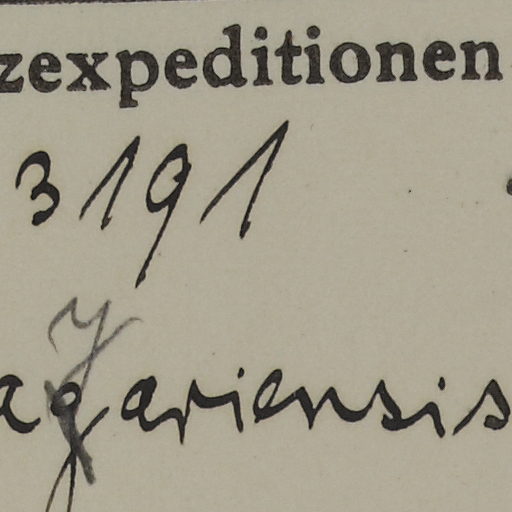 zexpeditionen
3191
y
agariensis